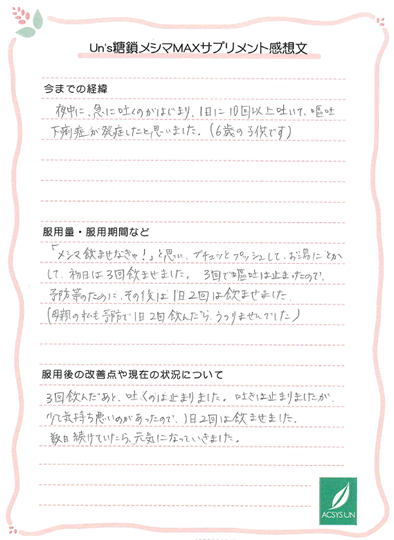 Un's糖鎖メシマMAXサプリメント感想文
今までの経緯
夜中に、急に吐くのがはじまり、1日に10回以上吐いて、嘔吐
下痢症が発症したと思いました。(6歳の子供です)
服用量・服用期間など
「メシマ飲ませなきゃ!」と思い、プチュッとプッシュして、お湯にとか
して、初日は3回飲ませました。3回で嘔吐は止まったので、
予防等のために、その後は1日2回は飲ませました
(母親の私も予防で1日2回飲んだら、うつりませんでした)
服用後の改善点や現在の状況について
3回飲んだあと、吐くのは止まりました。吐きは止まりましたが
少し気持ち悪いのがあったので、1日2回は飲ませました。
数日続けていたら、元気になっていきました。
ACSYS UN